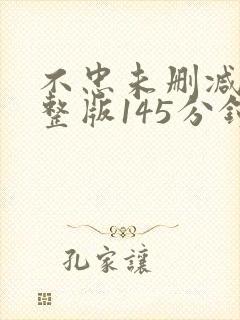 不忠未删减
整版145分钟
孔家讓